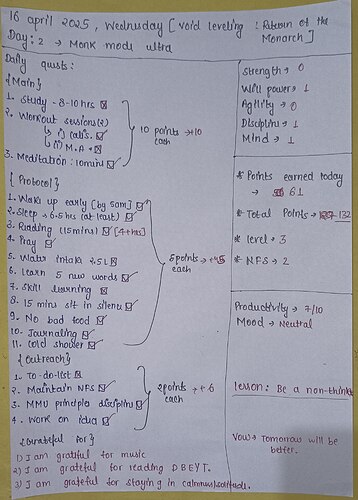 16 april 2025, Wednesday [Void leveling : Return of the
Monarch]
Day: 2 → Monk mode ultra
Daily quests:
{Main}
1. Study - 8-10 hrs
2. Workout sessions (2)
↳ i) Calis.
↳ ii) M.A
3. Meditation: 10mins
10 points → +10
each
{Protocol}
1. Wake up early [by 5am]
2. Sleep → 6.5 hrs (at least)
3. Reading (15mins) [4+hrs]
4. Pray
5. Water intake 2.5L
6. Learn 5 new words
7. Skill learning
8. 15 mins sit in silence
9. No bad food
10. Journaling
11. Cold shower
5 points → +45
each
{Outreach}
1. To-do-list
2. Maintain NFS
3. MMU principles discipline
4. Work on idea
2 points → + 6
each
{Grateful for}
1) I am grateful for music
2) I am grateful for reading DBEYT.
3) I am grateful for staying in calmness/solitude.
Strength → 0
Will power → 1
Agility → 0
Discipline → 1
Mind → 1
* Points earned today
→ 61
* Total Points → 132
* level → 3
* NFS → 2
Productivity → 7/10
Mood → Neutral
lesson: Be a non-thinker
Vow → Tomorrow will be
better.